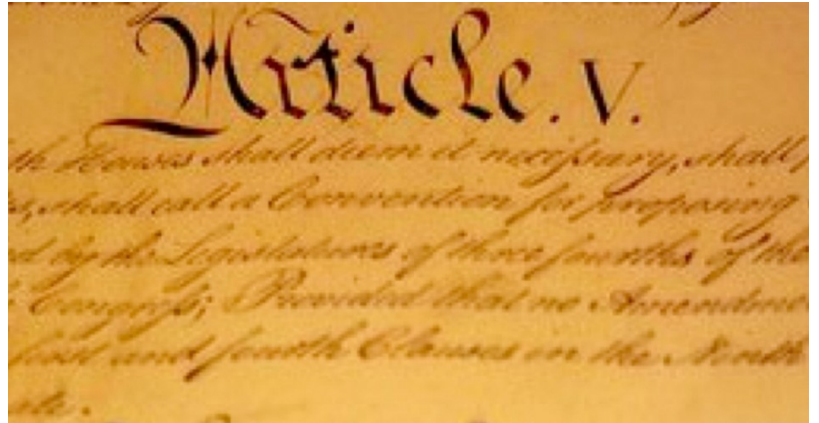 Article. V.
th Houses shall deem it neceſsary, shall
s, shall call a Convention for proposing
ed by the Legislatures of three fourths of the
Congreſs; Provided that no Amendme
first and fourth Clauses in the Ninth
ate.